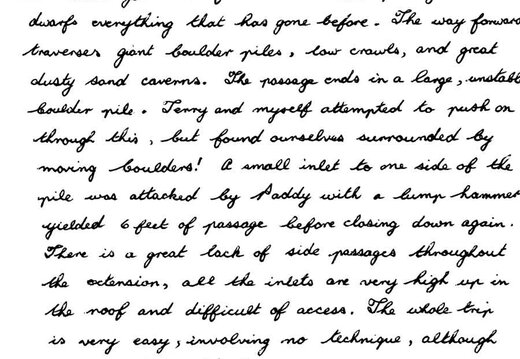 dwarfs everything that has gone before. The way forward
traverses giant boulder piles, low crawls, and great
dusty sand caverns. The passage ends in a large, unstabl
boulder pile. Terry and myself attempted to push on
through this, but found ourselves surrounded by
moving boulders! A small inlet to one side of the
pile was attacked by Paddy with a lump hammer
yielded 6 feet of passage before closing down again.
There is a great lack of side passages throughout
the extension, all the inlets are very high up in
the roof and difficult of access. The whole trip
is very easy, involving no technique, although